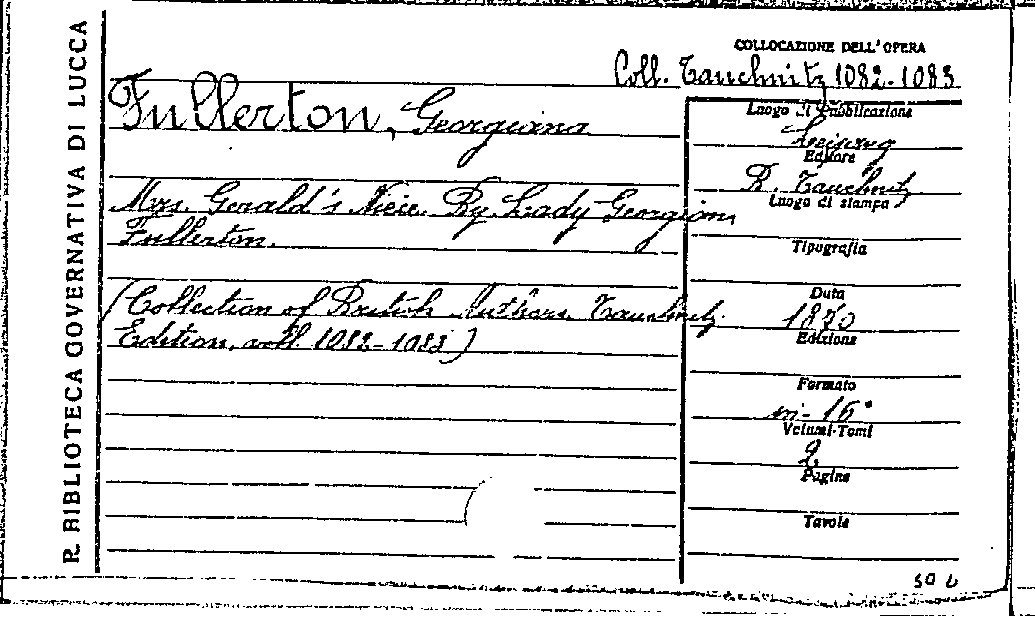 R. BIBLIOTECA GOVERNATIVA DI LUCCA
COLLOCAZIONE DELL'OPERA
Coll. Tauchnitz 1082-1083
Fullerton, Georgiana
Mrs. Gerald's Niece. By Lady Georgiana
Fullerton.
(Collection of British Authors Tauchnitz
Edition, voll. 1082-1083)
Luogo di Pubblicazione
Leipzig
Editore
B. Tauchnitz
Luogo di stampa
Tipografia
Data
1870
Edizione
Formato
in-16°
Volumi-Tomi
2
Pagine
Tavole